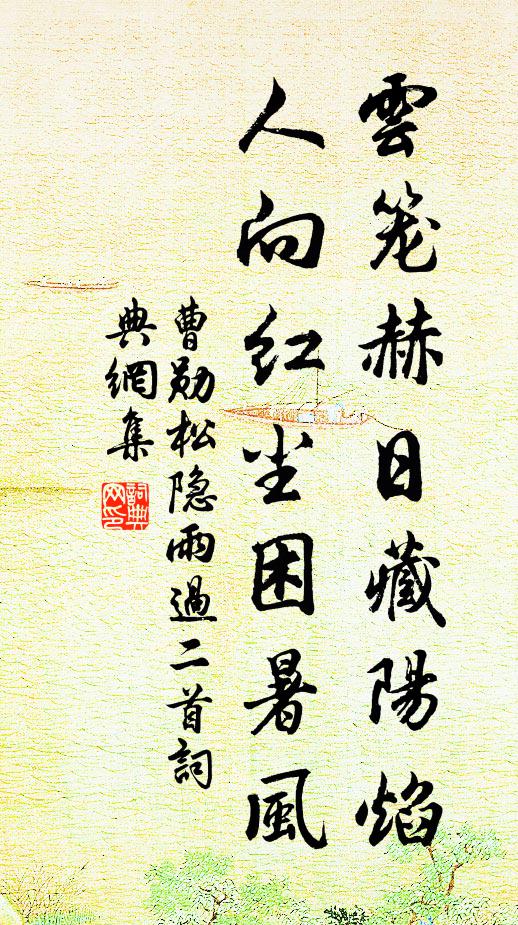 雲笼赫日藏陽焰
人向红尘困暑風
曹勛松隐雨過二首詞
典網集
詞典
网印